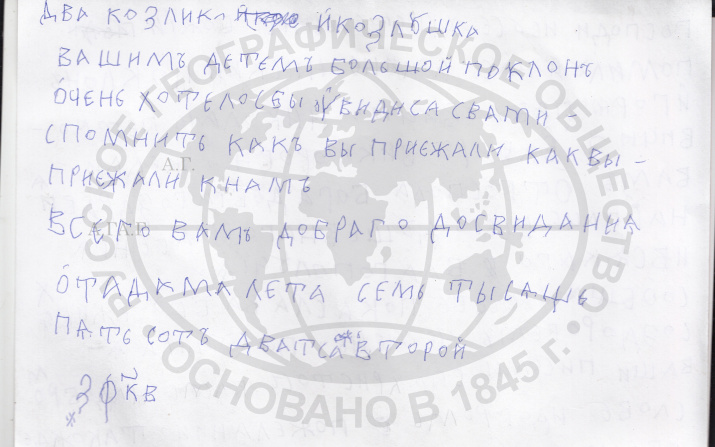 ДВА КОЗЛИКА И КОЗЛѢШКА
ВАШИМЪ ДЕТЕМЪ БОЛЬШОЙ ПОКЛОНЪ
ОЧЕНЬ ХОТЕЛОСЕБЫ УВИДИСА СВАМИ -
СПОМНИТЬ КАКЪ ВЫ ПРИЕЖАЛИ КАКВЫ -
ПРИЕЖАЛИ КНАМЪ
ВСЕГО ВАМЪ ДОБРАГО ДОСВИДАННА
ОТАДАМА ЛЕТА СЕМЬ ТЫСАЩЬ
ПАТЬ СОТЪ ДВАТСА ВТОРОЙ
҂ЗФКВ
РУССКОЕ ГЕОГРАФИЧЕСКОЕ ОБЩЕСТВО
ОСНОВАНО В 1845 г.
А.Г.